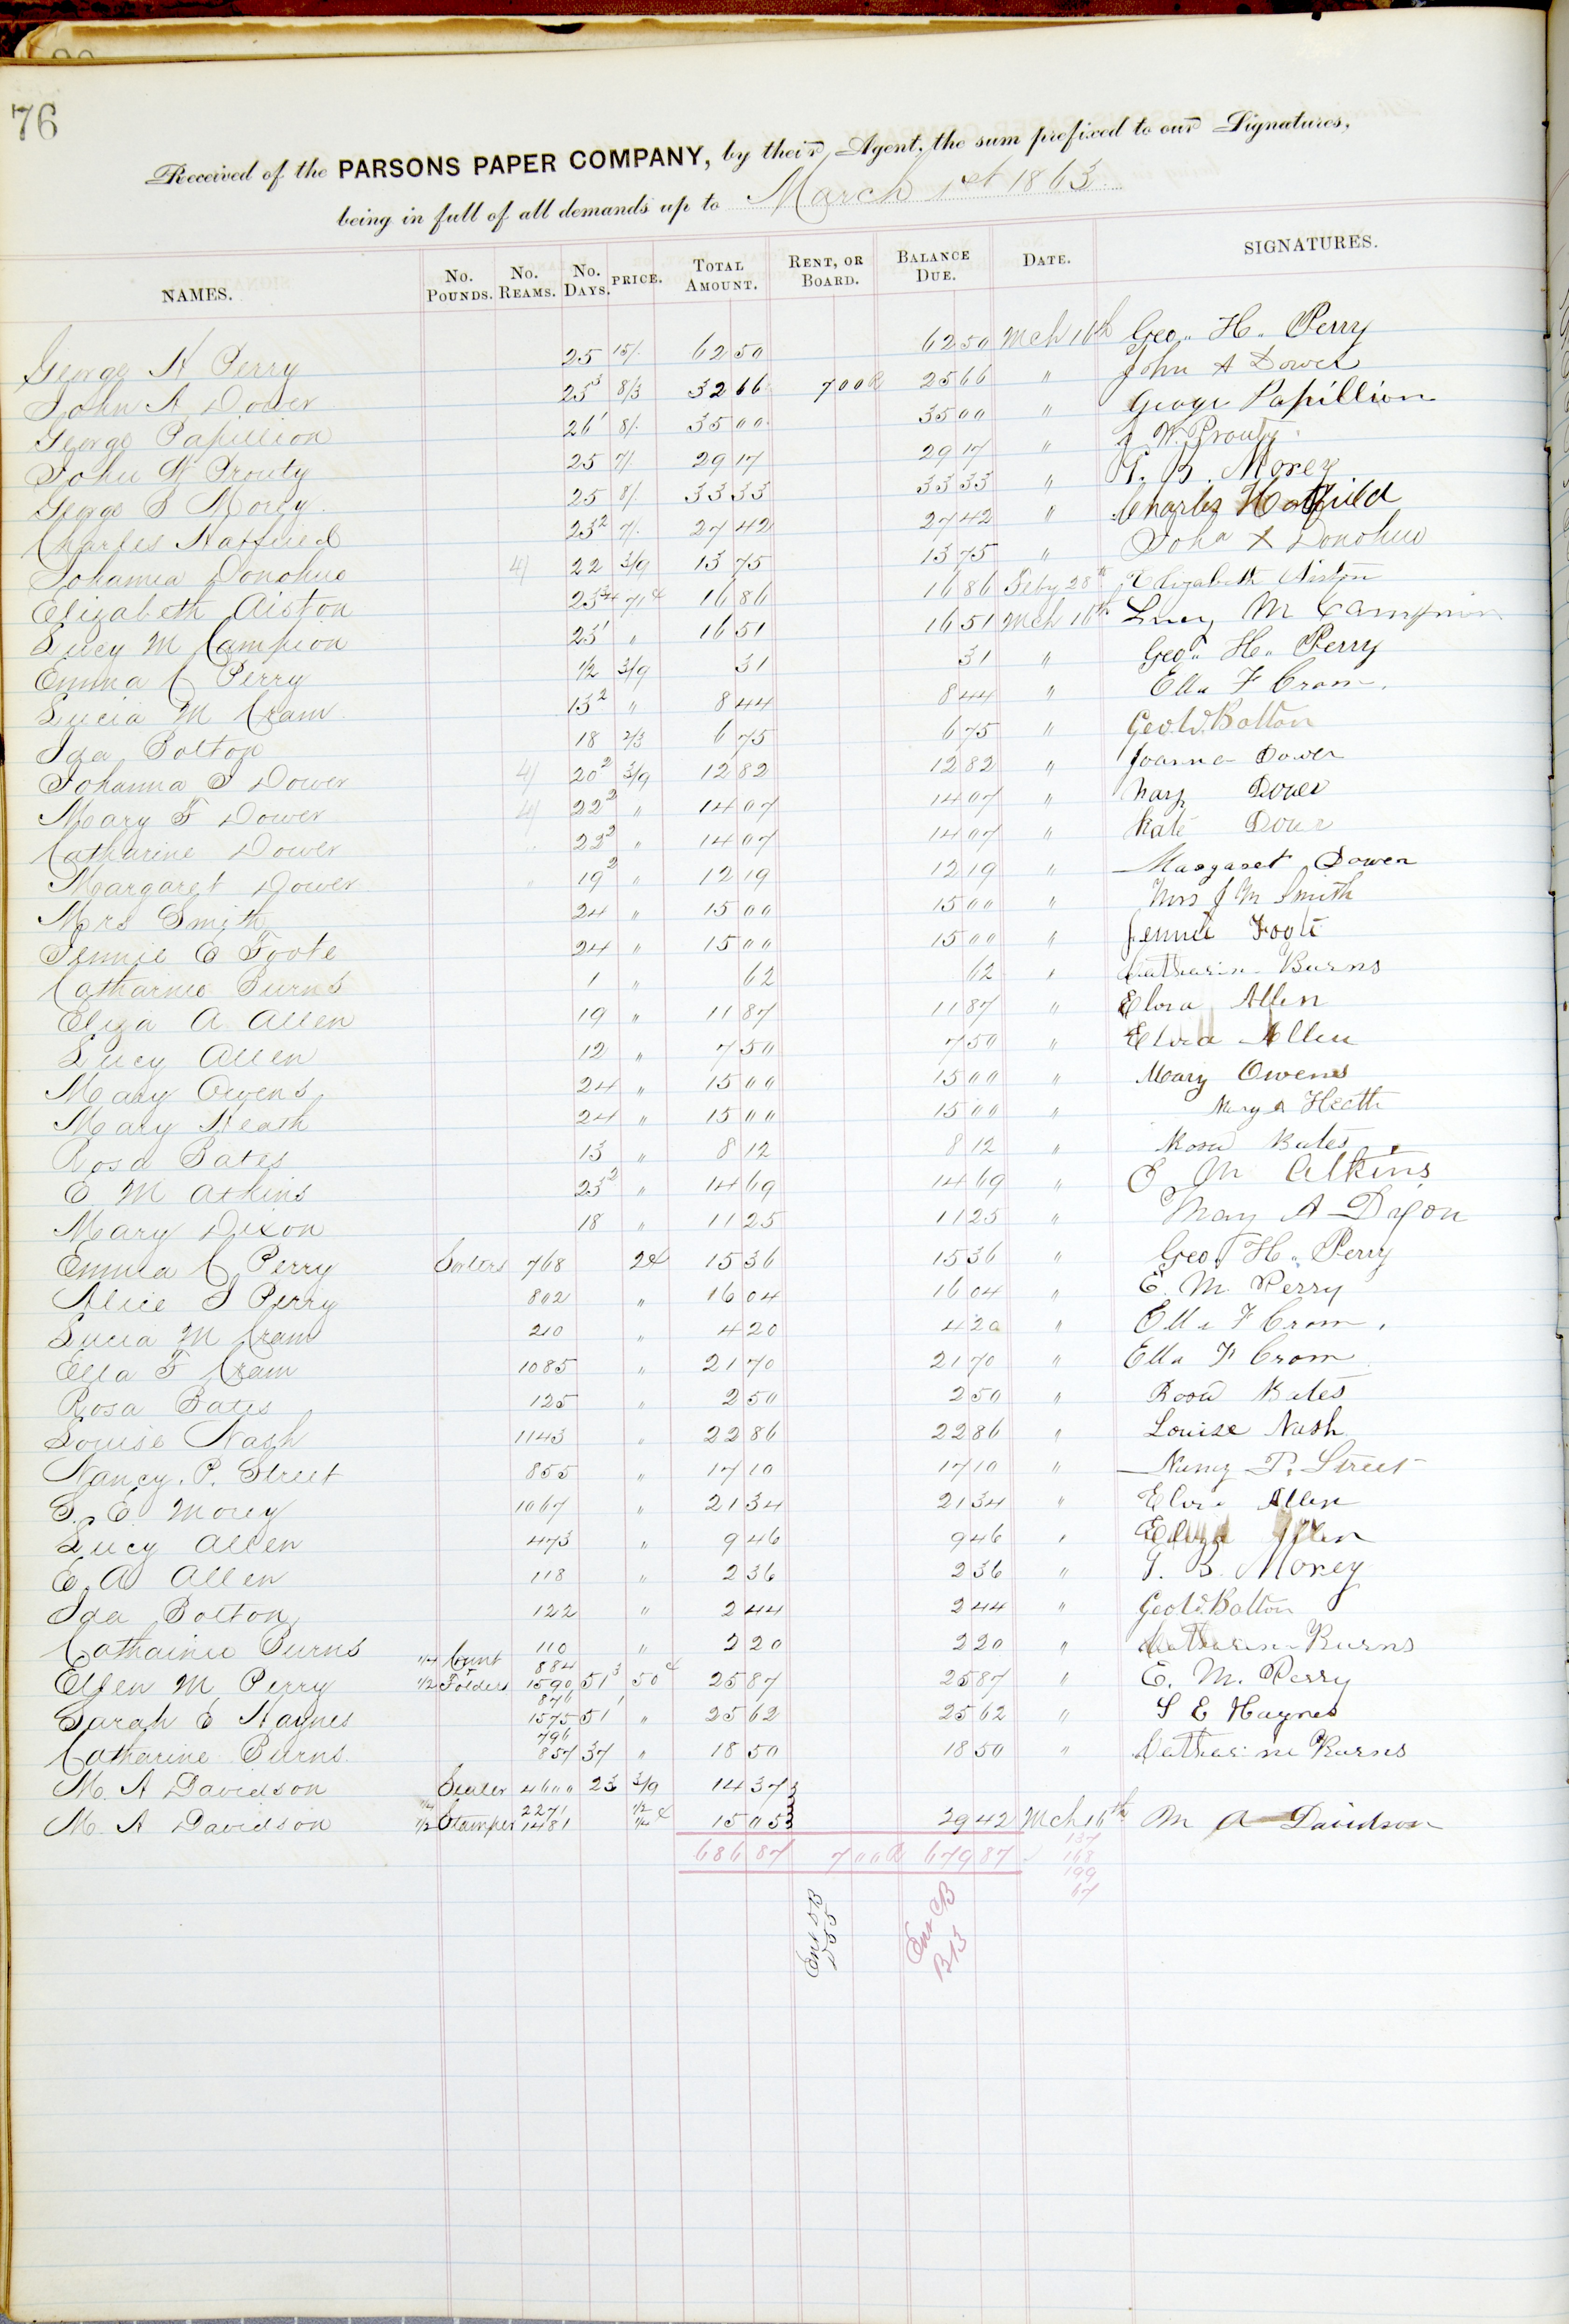 76
Received of the PARSONS PAPER COMPANY, by their Agent, the sum prefixed to our Signatures,
being in full of all demands up to March 1st 1863
NAMES. No. Pounds. No. Reams. No. Days. PRICE. Total Amount. Rent, or Board. Balance Due. Date. SIGNATURES.
George H Perry 25 15/. 62 50 62 50 Mch 16th Geo. H. Perry
John A Dower 25 3 8/3 32 66 7 00 R 25 66 " John A Dower
George Papillion 26 1 8/. 35 00 35 00 " George Papillion
John W Prouty 25 7/. 29 17 29 17 " J W. Prouty
George S Morey 25 8/. 33 33 33 33 " G. B. Morey
Charles Hatfield 23 2 7/. 27 42 27 42 " Charles Hatfield
Johanna Donohue 4/ 22 3/9 13 75 13 75 " John X Donohue
Elizabeth Aiston 23 3/4 71¢ 16 86 16 86 Feby 28th Elizabeth Aiston
Lucy M Campion 23 1 " 16 51 16 51 Mch 16th Lucy M Campion
Emma C Perry 1/2 3/9 31 31 " Geo. H. Perry
Lucia M Cram 13 2 " 8 44 8 44 " Ella F Cram.
Ida Bolton 18 2/3 6 75 6 75 " Geo W. Bolton
Johanna S Dower 4/ 20 2 3/9 12 82 12 82 " Joanna Dower
Mary F Dower 4/ 22 2 " 14 07 14 07 " Mary Dower
Catharine Dower " 22 2 " 14 07 14 07 " Kate Dower
Margaret Dower " 19 2 " 12 19 12 19 " Margaret Dower
Mrs Smith 24 " 15 00 15 00 " Mrs J M Smith
Jennie E Foote 24 " 15 00 15 00 " Jennie Foote
Catharine Burns 1 " 62 62 " Catharine Burns
Eliza A Allen 19 " 11 87 11 87 " Elvira Allen
Lucy Allen 12 " 7 50 7 50 " Elvira Allen
Mary Owens 24 " 15 00 15 00 " Mary Owens
Mary Heath 24 " 15 00 15 00 " Mary A Heath
Rosa Bates 13 " 8 12 8 12 " Rosa Bates
E M Atkins 23 2 " 14 69 14 69 " E M Atkins
Mary Dixon 18 " 11 25 11 25 " Mary A Dixon
Emma C Perry Sorters 768 2¢ 15 36 15 36 " Geo. H. Perry
Alice S Perry 802 " 16 04 16 04 " E. M. Perry
Lucia M Cram 210 " 4 20 4 20 " Ella F Cram.
Ella F Cram 1085 " 21 70 21 70 " Ella F Cram
Rosa Bates 125 " 2 50 2 50 " Rosa Bates
Louise Nash 1143 " 22 86 22 86 " Louise Nash
Nancy. P. Street 855 " 17 10 17 10 " Nancy P. Street
G. E Morey 1067 " 21 34 21 34 " Elvira Allen
Lucy Allen 473 " 9 46 9 46 " Allen
E. A Allen 118 " 2 36 2 36 " G. B. Morey
Ida Bolton 122 " 2 44 2 44 " Geo W. Bolton
Catharine Burns 110 " 2 20 2 20 " Catharine Burns
1/4 Count 884
Ellen M Perry 1/2 Folders 1590 51 3 50¢ 25 87 25 87 " E. M. Perry
876
Sarah E Haynes 1575 51 1 " 25 62 25 62 " S E Haynes
796
Catharine Burns 857 37 " 18 50 18 50 " Catharine Burns
M. A Davidson Sealer 4600 23 3/9 14 37
1/4 2271 1/2
M. A Davidson 1/2 Stamper 1481 1/4 ¢ 15 05 29 42 Mch 16th M A Davidson
686 87 7 00 R 679 87
137
168
199
67
Ent CB
B13